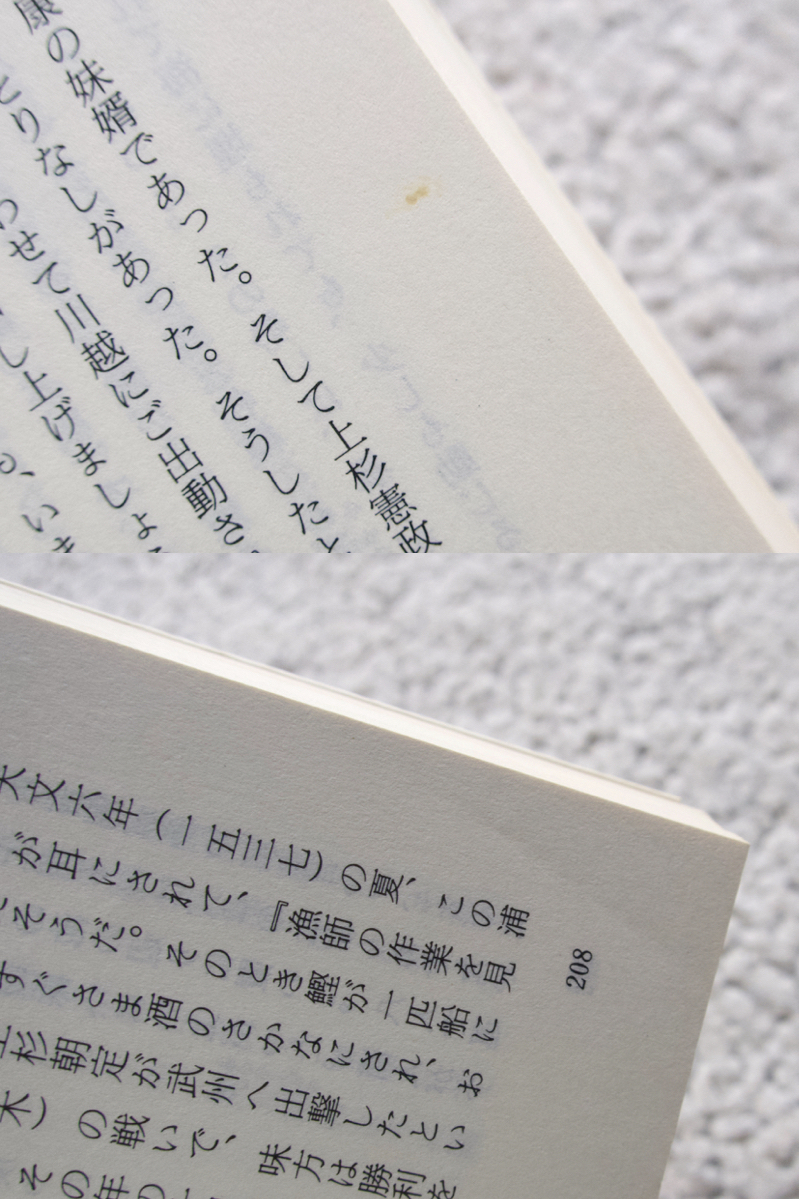 康の妹婿であった。そして上杉憲政
とりなしがあった。そうしたと
わせて川越にご出動さ
し上げましょう
、いま
208
天文六年(一五三七)の夏、この浦
が耳にされて、『漁師の作業を見
そうだ。そのとき鰹が一匹船に
すぐさま酒のさかなにされ、お
上杉朝定が武州へ出撃したとい
木)の戦いで、味方は勝利を
その年の